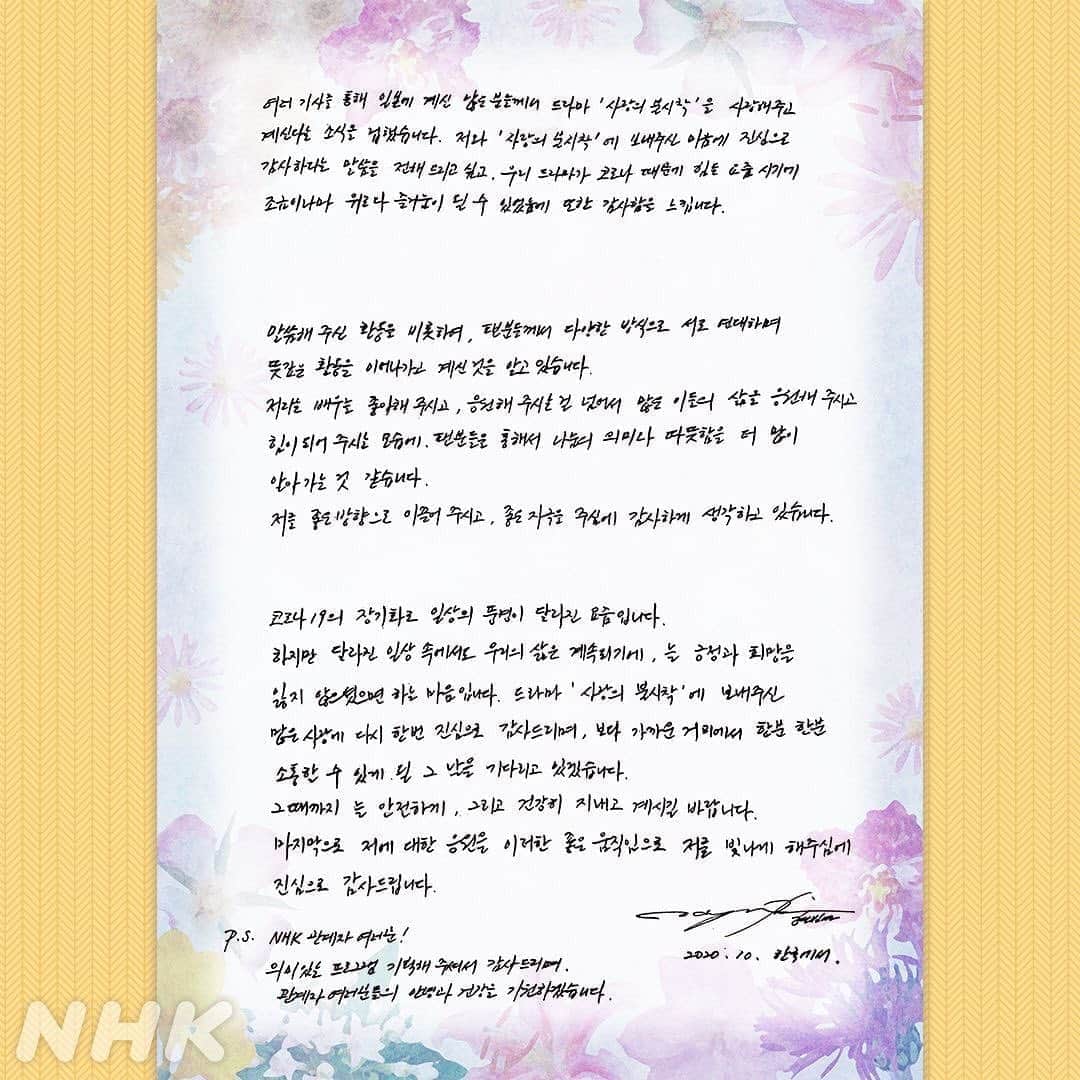 여러 기사를 통해 일본에 계신 많은 분들께서 드라마 '사랑의 불시착'을 사랑해주고
계신다는 소식을 접했습니다. 저와 '사랑의 불시착'에 보내주신 마음에 진심으로
감사하다는 말씀을 전해 드리고 싶고, 우리 드라마가 코로나 때문에 힘든 요즘 시기에
조금이나마 위로와 즐거움이 될 수 있었음에 또한 감사함을 느낍니다.
말씀해 주신 활동을 비롯하여, 팬분들께서 다양한 방식으로 서로 연대하며
뜻깊은 활동을 이어나가고 계신 것을 알고 있습니다.
저라는 배우를 좋아해 주시고, 응원해 주시는 걸 넘어서 많은 이들의 삶을 응원해 주시고
힘이 되어 주시는 모습에, 팬분들을 통해서 나눔의 의미나 따뜻함을 더 많이
알아가는 것 같습니다.
저를 좋은 방향으로 이끌어 주시고, 좋은 자극을 주심에 감사하게 생각하고 있습니다.
코로나19의 장기화로 일상의 풍경이 달라진 요즘입니다.
하지만 달라진 일상 속에서도 우리의 삶은 계속되기에, 늘 긍정과 희망을
잃지 않으셨으면 하는 마음입니다. 드라마 '사랑의 불시착'에 보내주신
많은 사랑에 다시 한번 진심으로 감사드리며, 보다 가까운 거리에서 한분 한분
소통할 수 있게 될 그 날을 기다리고 있겠습니다.
그때까지 늘 안전하게, 그리고 건강히 지내고 계시길 바랍니다.
마지막으로 저에 대한 응원을 이러한 좋은 움직임으로 저를 빛나게 해주심에
진심으로 감사드립니다.
2020. 10. 한국에서.
P.S. NHK 관계자 여러분!
의미있는 프로그램 기획해 주셔서 감사드리며,
관계자 여러분들의 안녕과 건강을 기원하겠습니다.
NHK